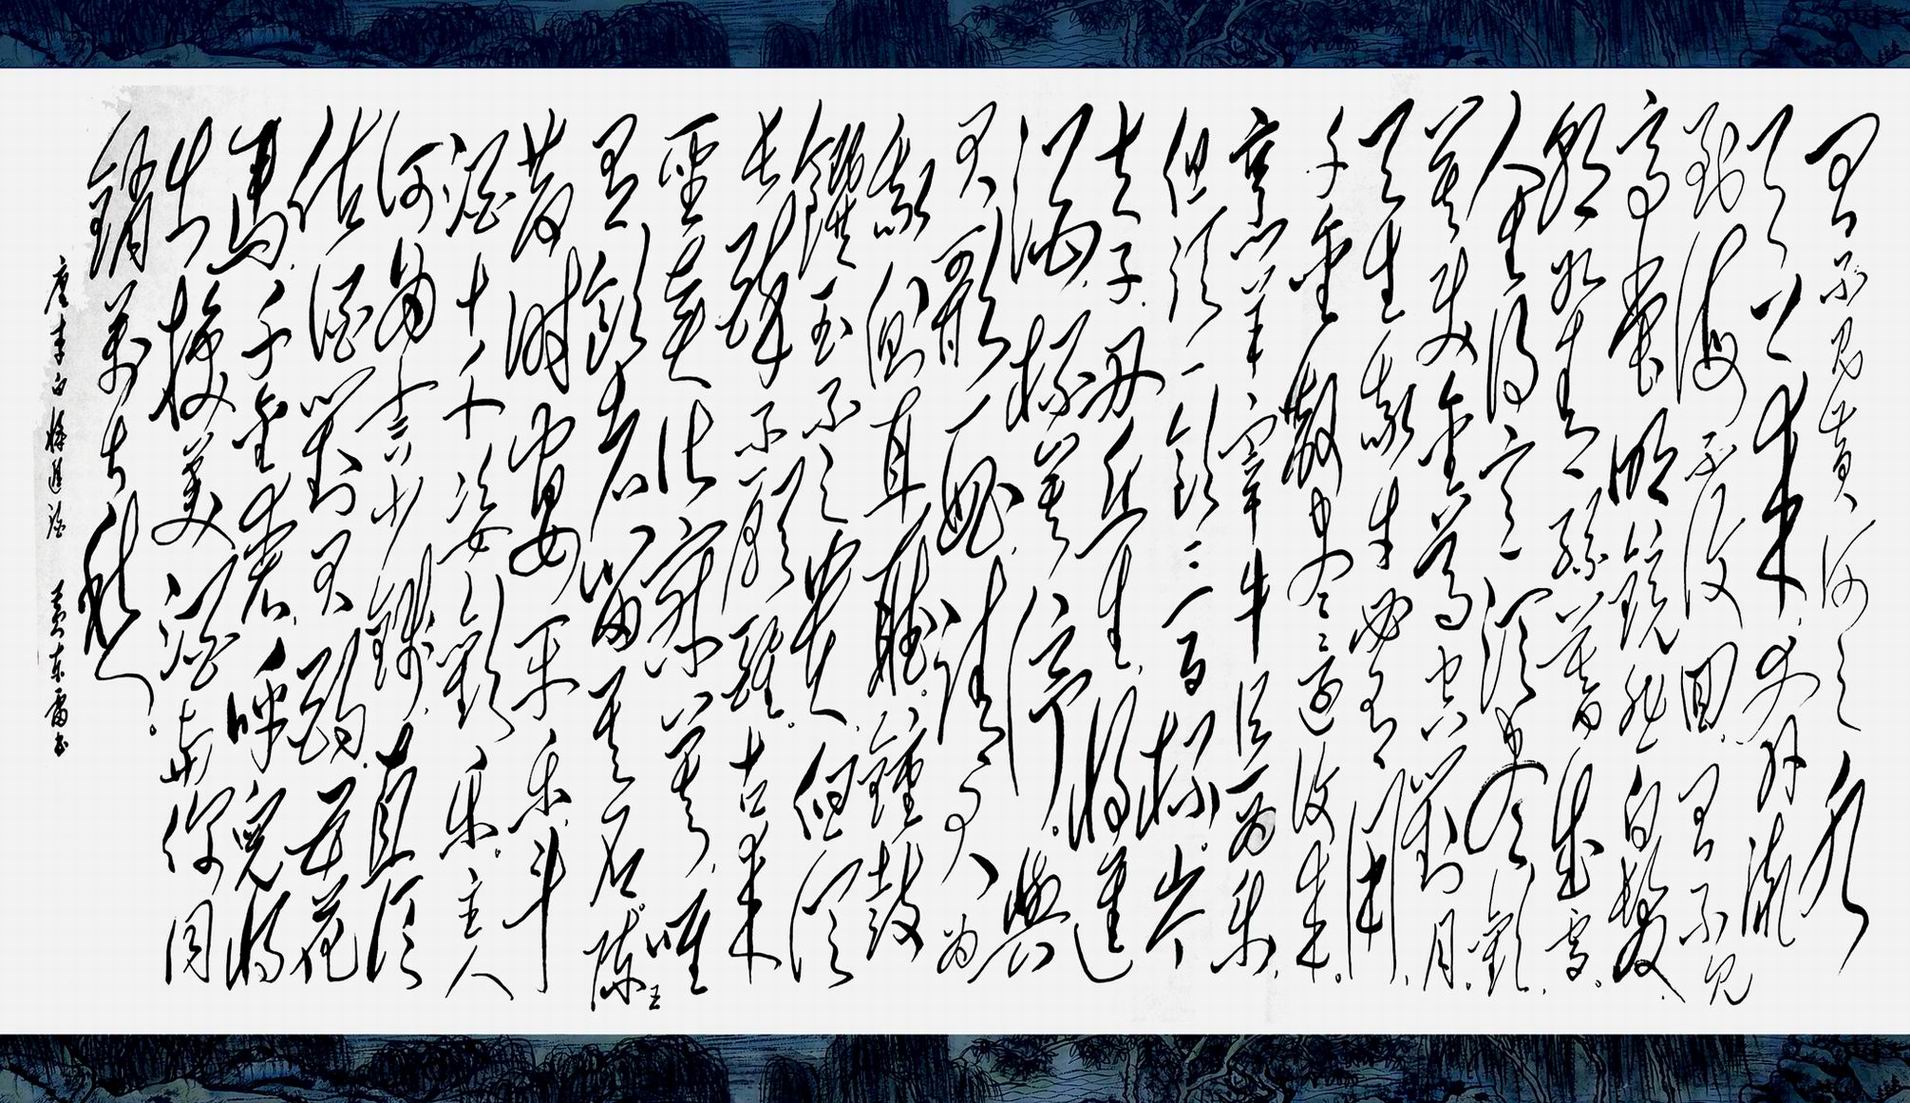 君不见黄河之水
天上来奔流
到海不复回君不见
高堂明镜悲白发
朝如青丝暮成雪
人生得意须尽欢
莫使金樽空对月
天生我材必有用
千金散尽还复来
烹羊宰牛且为乐
但须一饮三百杯岑
夫子丹丘生将进
酒杯莫停与
君歌一曲请君为
我倾耳听钟鼓
馔玉不足贵但愿
长醉不愿醒古来
圣贤皆寂寞唯
有饮者留其名陈王
昔时宴平乐斗
酒十千恣欢乐主人
何为言少钱直须
沽酒对君酌五花
马千金裘呼儿将
出换美酒与你同
销万古愁
唐李白将进酒 黄东雷书